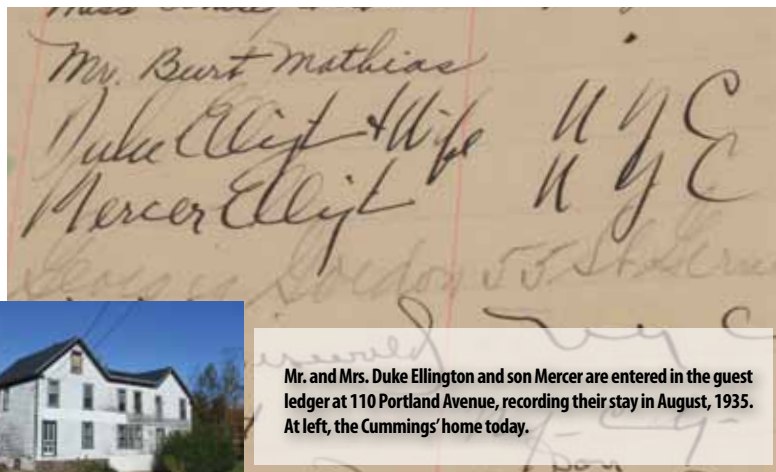 Miss
Mr. Burt Mathias
Duke Elligt + Wife N Y C
Mercer Elligt N Y C
Gordon 55 St
Mr. and Mrs. Duke Ellington and son Mercer are entered in the guest
ledger at 110 Portland Avenue, recording their stay in August, 1935.
At left, the Cummings’ home today.